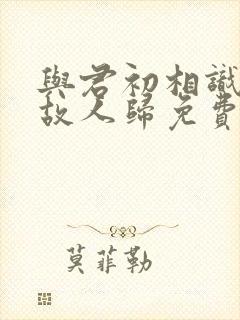 與君初相識
故人歸免費
莫菲勒